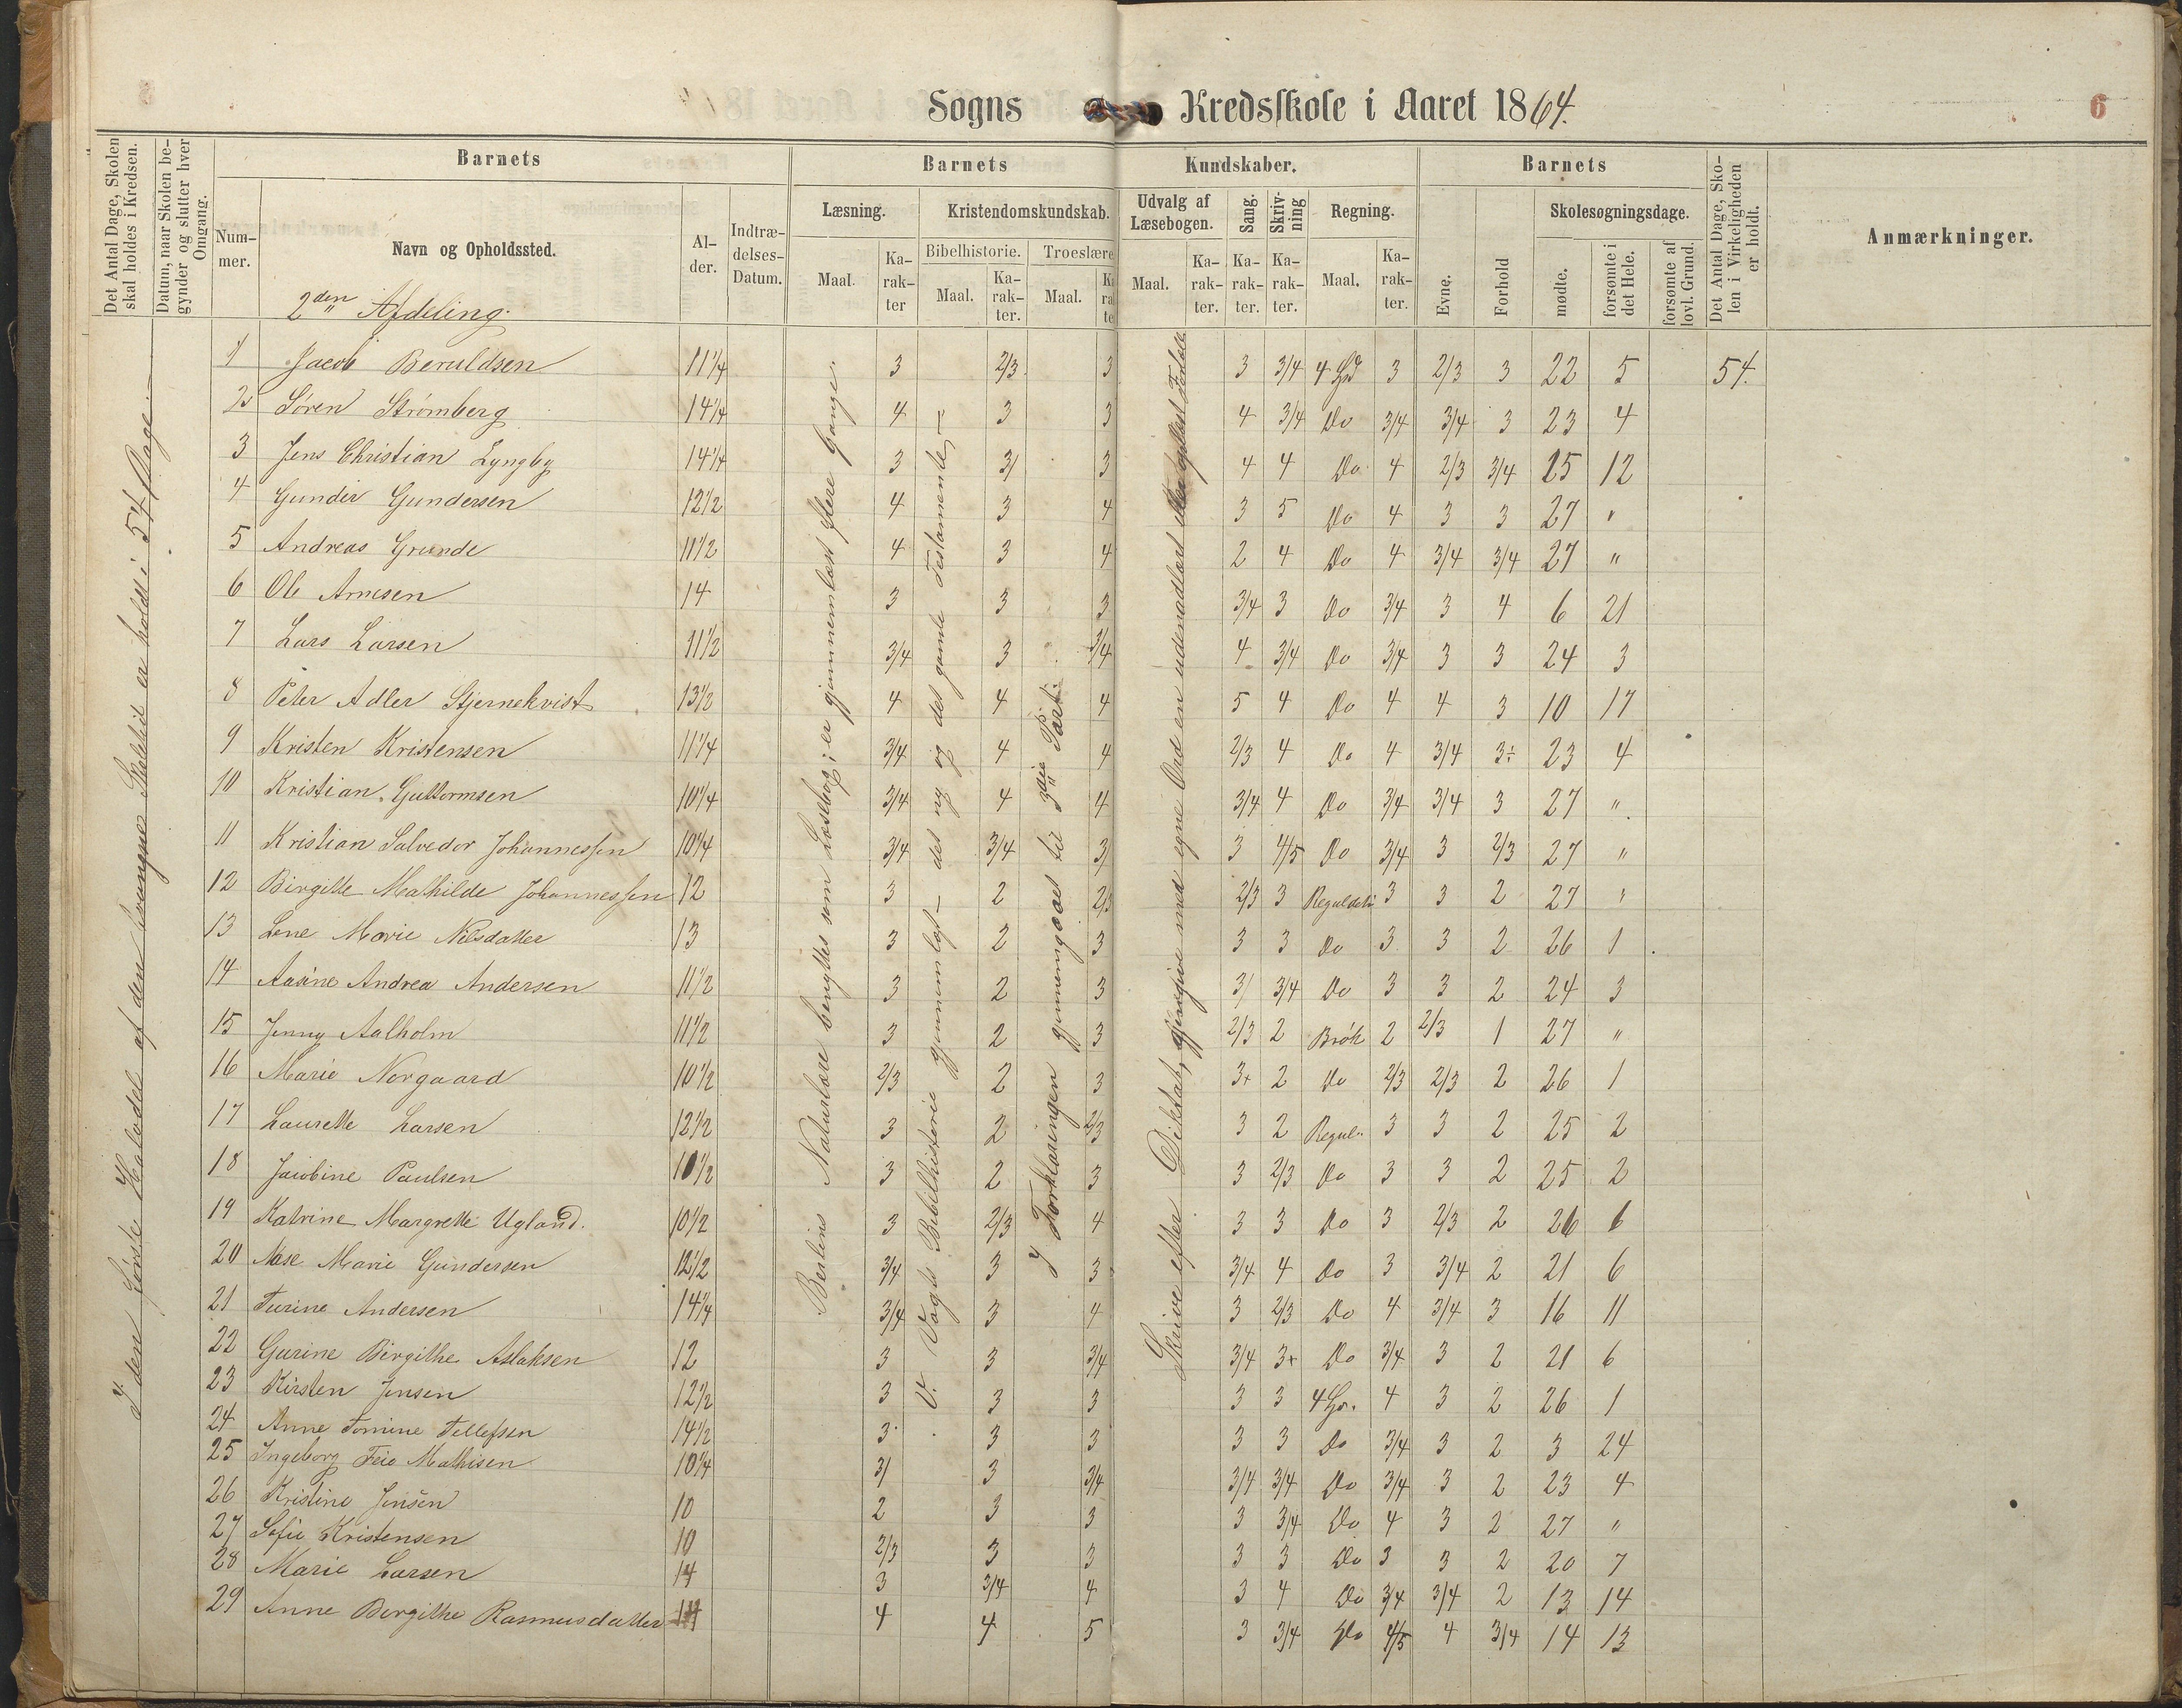 Sogns Kredsskole i Aaret 1864.
6
Det Antal Dage, Skolen skal holdes i Kredsen.
Datum, naar Skolen begynder og slutter hver Omgang.
Barnets
Barnets
Kundskaber.
Barnets
Det Antal Dage, Skolen i Virkeligheden er holdt.
Anmærkninger.
Nummer.
Navn og Opholdssted.
Alder.
Indtrædelses-Datum.
Læsning.
Kristendomskundskab.
Udvalg af Læsebogen.
Sang.
Skrivning
Regning.
Evne.
Forhold
Skolesøgningsdage.
Bibelhistorie.
Troeslære
Maal.
Karakter
Maal.
Karakter.
Maal.
Maal.
Karakter.
Karakter.
Karakter.
Maal.
Karakter.
mødte.
forsømte i det Hele.
forsømte af lovl. Grund.
2den Afdeling.
I den første Halvdel af den tvungne Skoletid er holdt i 54 Dage.
Bentens Naturlære benyttet som Læsebog; er gjennemlæst flere Gange.
V. Vogts Bibelhistorie gjennemlæst – det ny og det gamle Testamente –
I Forklaringen gjennemgaaet til 3die Part.
Skrive efter Diktat, gjengive med egne Ord en udenadlært eller oplæst Fortælle
1 Jacob Beruldsen 11¼ 3 2/3 3 3 3/4 4 Gr 3 2/3 3 22 5 54.
2 Søren Strømberg 14¼ 4 3 3 4 3/4 Do 3/4 3/4 3 23 4
3 Jens Christian Lyngby 14¼ 3 3/ 3 4 4 Do 4 2/3 3/4 15 12
4 Gunder Gundersen 12½ 4 3 4 3 5 Do 4 3 3 27 "
5 Andreas Grunde 11½ 4 3 4 2 4 Do 4 3/4 3/4 27 "
6 Ole Arnesen 14 3 3 3 3/4 3 Do 3/4 3 4 6 21
7 Lars Larsen 11½ 3/4 3 3/4 4 3/4 Do 3/4 3 3 24 3
8 Peter Adler Stjernekvist 13½ 4 4 4 5 4 Do 4 4 3 10 17
9 Kristen Kristensen 11¼ 3/4 4 4 2/3 4 Do 4 3/4 3÷ 23 4
10 Kristian Guttormsen 10¼ 3/4 4 4 3/4 4 Do 3/4 3/4 3 27 "
11 Kristian Salvedor Johannessen 10¼ 3/4 3/4 3/ 3 4/5 Do 3/4 3 2/3 27 "
12 Birgitte Mathilde Johannessen 12 3 2 2/3 2/3 3 Reguldetri 3 3 2 27 "
13 Lene Marie Nilsdatter 13 3 2 3 3 3 Do 3 3 2 26 1
14 Aasine Andrea Andersen 11½ 3 2 3 3/ 3/4 Do 3 3 2 24 3
15 Jenny Aalholm 11½ 3 2 3 2/3 2 Brøk 2 2/3 1 27 "
16 Marie Norgaard 10½ 2/3 2 3 3+ 2 Do 2/3 2/3 2 26 1
17 Laurette Larsen 12½ 3 2 2/3 3 2 Regul. 3 3 2 25 2
18 Jacobine Paulsen 10½ 3 2 3 3 2/3 Do 3 3 2 25 2
19 Katrine Margrette Ugland. 10½ 3 2/3 4 3 3 Do 3 2/3 2 26 6
20 Aase Marie Gundersen 12½ 3/4 3 3 3/4 4 Do 3 3/4 2 21 6
21 Turine Andersen 14¼ 3/4 3 4 3 2/3 Do 4 3/4 3 16 11
22 Gurine Birgithe Aslaksen 12 3 3 3/4 3/4 3+ Do 3/4 3 2 21 6
23 Kirsten Jensen 12½ 3 3 3 3 3 4 Gr. 4 3 2 26 1
24 Anne Tomine Tellefsen 14½ 3 3 3 3 3 Do 3/4 3 2 3 24
25 Ingeborg Feie Mathisen 10¼ 3/ 3 3/4 3/4 3/4 Do 3/4 3 2 23 4
26 Kristine Jensen 10 2 3 3 3 3/4 Do 4 3 2 27 "
27 Sofie Kristensen 10 2/3 3 3 3 3 Do 3 3 2 20 7
28 Marie Larsen 14 3 3/4 4 3 4 Do 3/4 3/4 2 13 14
29 Anne Birgithe Rasmusdatter 4 4 5 3 3/4 Do 4/5 4 3/4 14 13